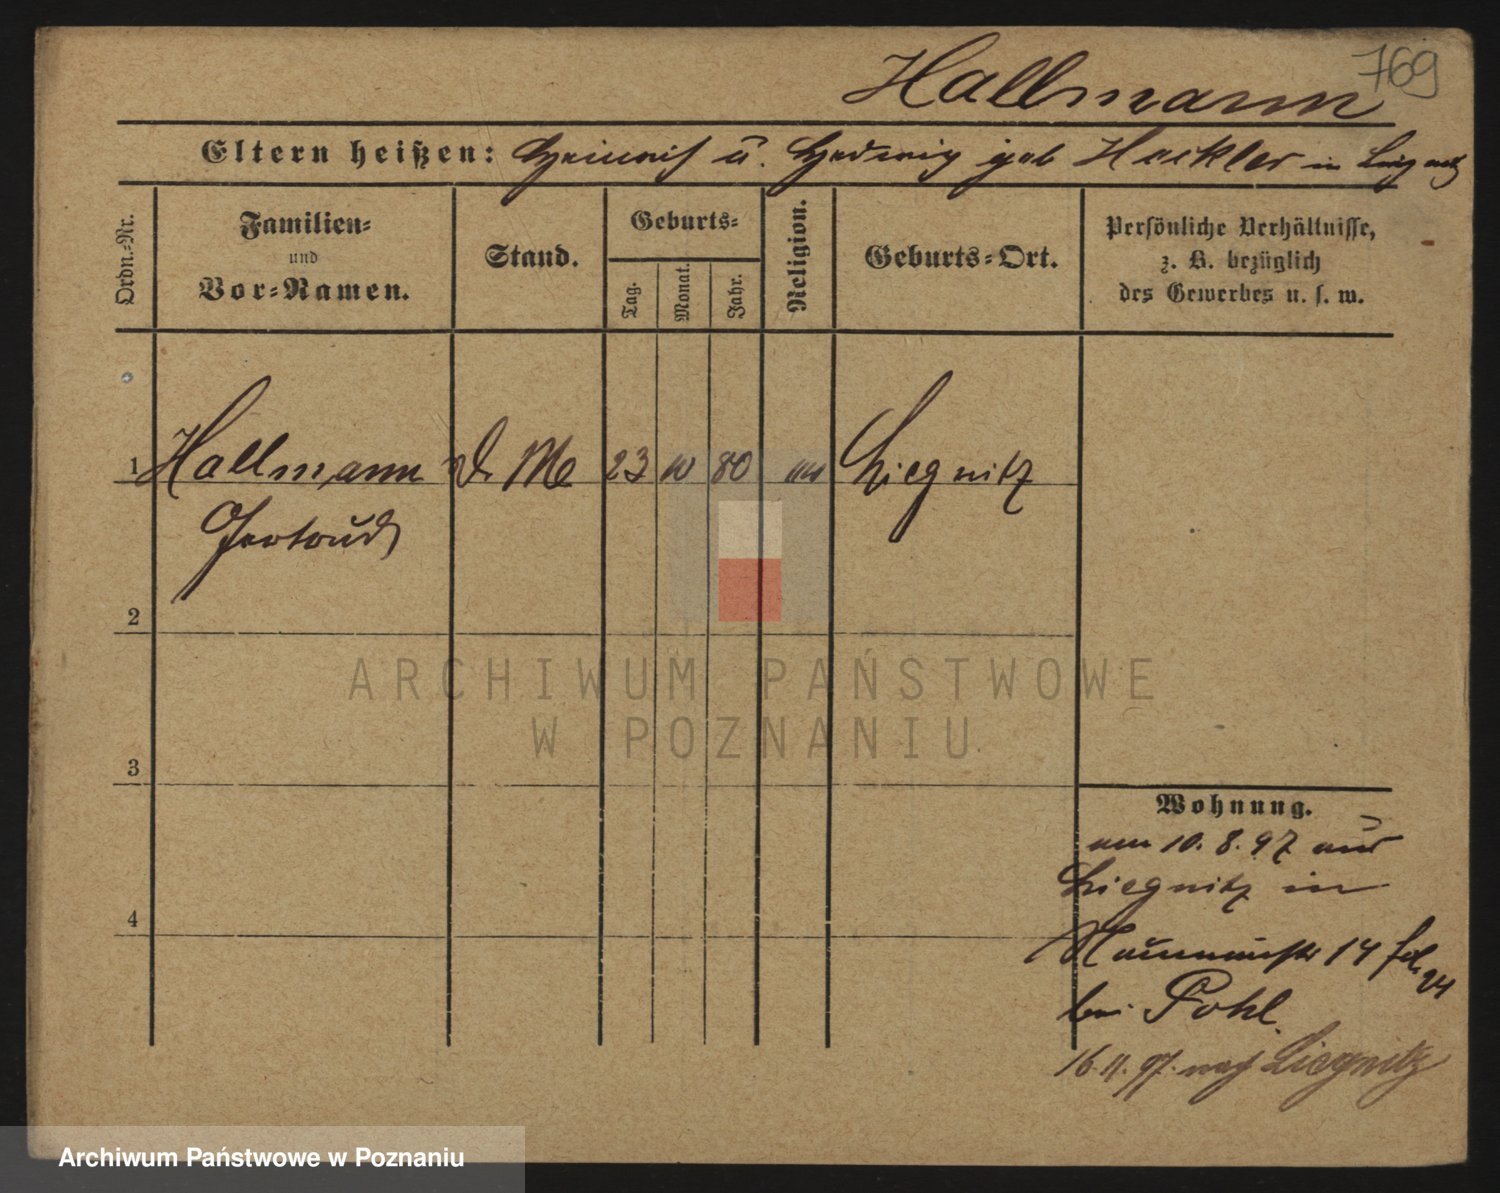 769
Hallmann
Eltern heißen: Heinrich u. Hedwig geb Heckler in Liegnitz
Ordn.-Nr.
Familien-
und
Vor-Namen.
Stand.
Geburts-
Tag.
Monat.
Jahr.
Religion.
Geburts-Ort.
Persönliche Verhältnisse,
z. B. bezüglich
des Gewerbes u. s. w.
1 Hallmann d. M 23 10 80 Liegnitz
Gertrud
2
3
4
Wohnung.
am 10. 8. 97 aus
Liegnitz in
Naumannstr 14
bei Pohl.
16. 11. 97. nach Liegnitz
ARCHIWUM PAŃSTWOWE
W POZNANIU
Archiwum Państwowe w Poznaniu